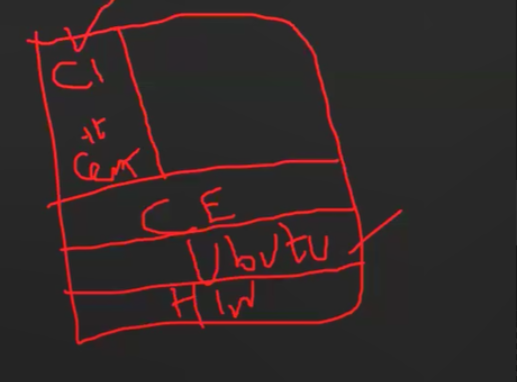 C1
it
Cent
C.E
Ubutu
H/W